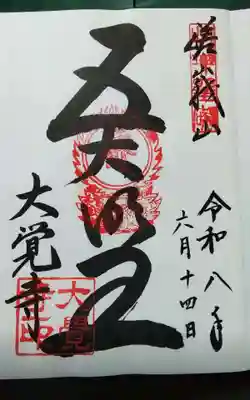 嵯峨山
令和八年
六月十四日
五大明王
大覚寺
大覺寺印